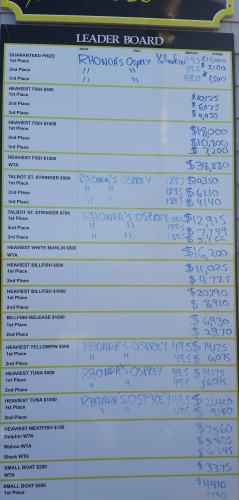 LEADER BOARD
BOAT FISH WEIGHT PURSE
GUARANTEED PRIZE
1st Place RHONDA'S OSPREY Yellowfin
2nd Place " "
3rd Place " "
HEAVIEST FISH $500
1st Place $10125
2nd Place $6,075
3rd Place
HEAVIEST FISH $1000
1st Place $18,000
2nd Place $10,800
3rd Place $7,200
HEAVIEST FISH $1200
WTA $38,880
TALBOT ST. STRINGER $500
1st Place RHONDA'S OSPREY 188.5 $10350
2nd Place " " 188.5 $6210
3rd Place 188.5 $4140
TALBOT ST. STRINGER $700
1st Place RHONDA'S OSPREY $12,915
2nd Place " "
3rd Place " "
HEAVIEST WHITE MARLIN $500
WTA $16,200
HEAVIEST BILLFISH $500
1st Place $11,025
2nd Place $4725
HEAVIEST BILLFISH $1000
1st Place $20,790
2nd Place $8,910
BILLFISH RELEASE $1000
1st Place $6,930
2nd Place $2970
HEAVIEST YELLOWFIN $500
1st Place RHONDA'S OSPREY 49.5 $14175
2nd Place " " 49.5 $6,075
HEAVIEST TUNA $500
1st Place RHONDA'S OSPREY 49.5 $14175
2nd Place " " 49.5 $6,075
HEAVIEST TUNA $1000
1st Place RHONDA'S OSPREY 49.5
2nd Place " " 49.5
HEAVIEST MEATFISH $150
Dolphin WTA $7560
Wahoo WTA
Shark WTA
SMALL BOAT $200
WTA $3375
SMALL BOAT $500
1st Place $4410
2nd Place